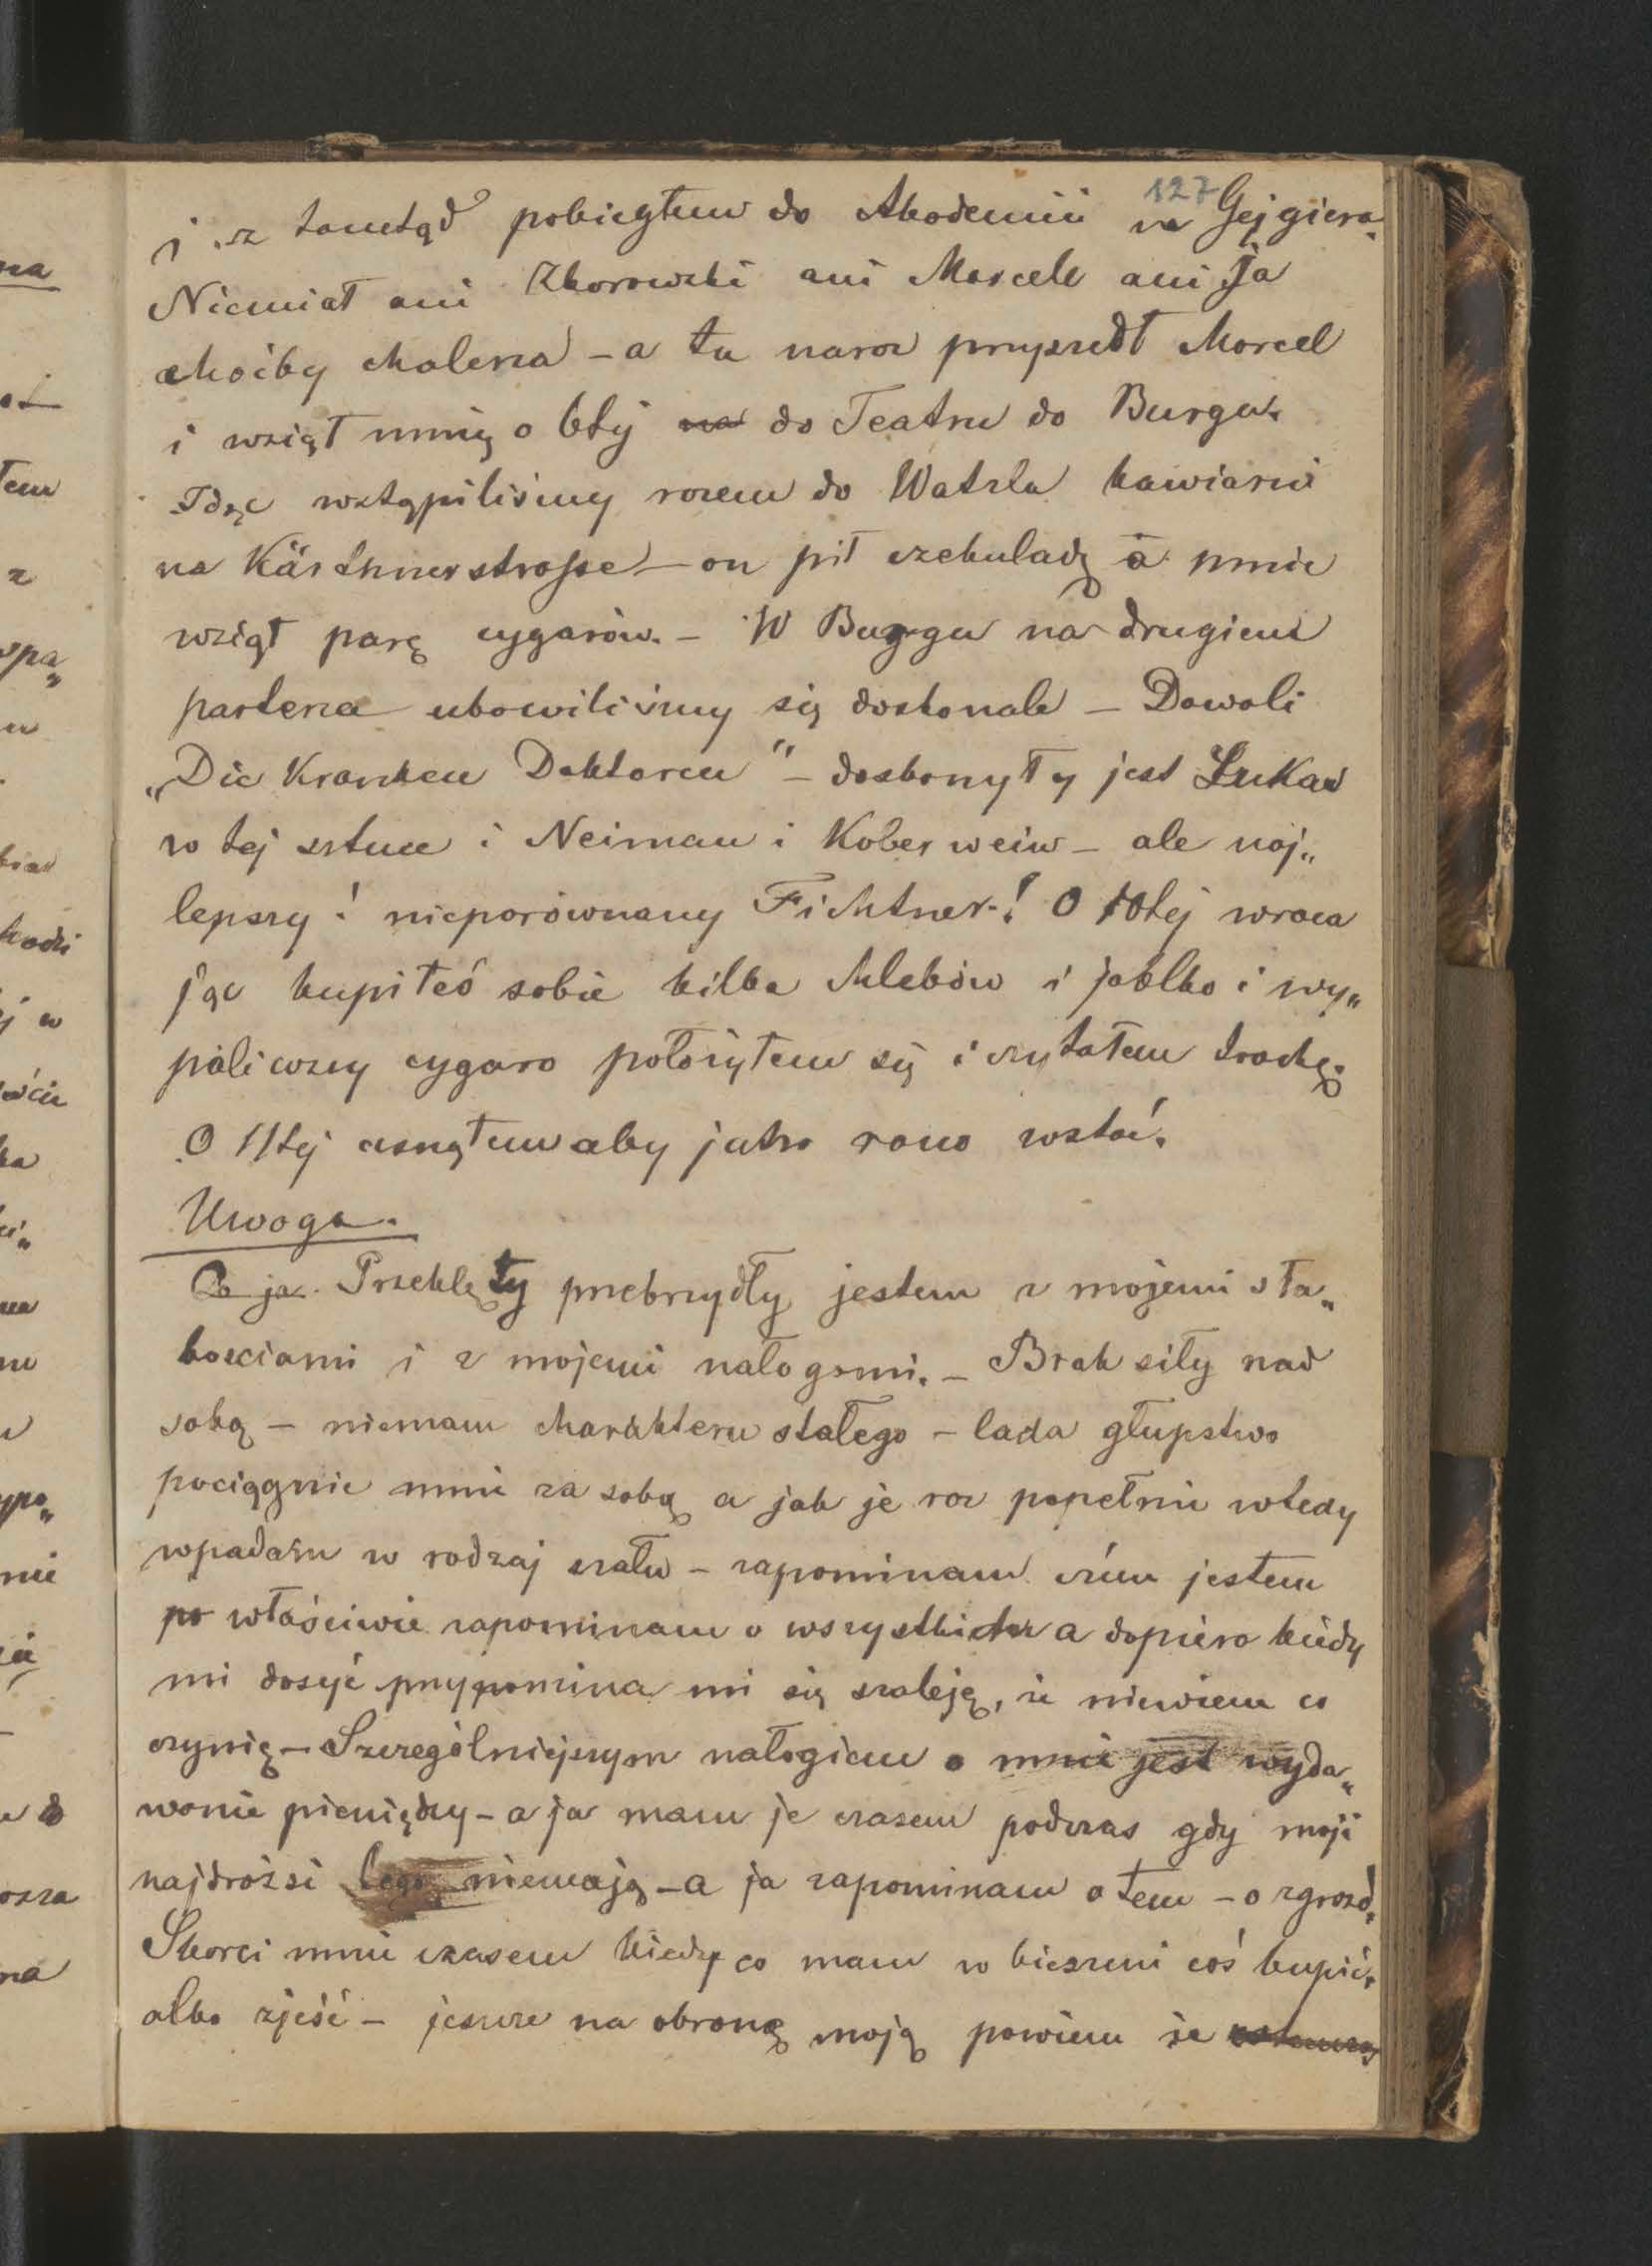 127
i z tamtąd pobiegłem do Akademii na Gejgiera.
Niemiał ani Zborowski ani Marcell ani Ja
choćby halerza – a tu naraz przyszedł Marcel
i wziął mnię o 6téj na do Teatru do Burgu.
Idąc wstąpiliśmy razem do Watzla kawiarni
na Kärthnerstrasse – on pił czekuladę a mnie
wziął parę cygarów. – W Burgu na drugiem
parterze ubawiliśmy się doskonale – Dawali
„Die Kranken Doktoren" – doskonyły jest Lukas
w tej sztuce i Neiman i Koberwein – ale naj„
lepszy! nieporównany Fichtner! O 10tej wraca
jąc kupiłeś sobie kilka chlebów i jabłko i wy„
paliwszy cygaro położyłem się i czytałem trochę.
O 11tej usnąłem aby jutro rano wstać.
Uwaga.
Co ja. Przeklęty przebrzydły jestem z mojemi sła„
bościami i z mojemi nałogami. – Brak siły nad
sobą – niemam charakteru stałego – lada głupstwo
pociągnie mnie za sobą a jak je raz popełnie wtedy
wpadam w rodzaj szału – zapominam czém jestem
po właściwie zapominam o wszystkiem a dopiero kiedy
mi dosyć przypomina mi się szaleję, że niewiem co
czynię – Szczególniejszym nałogiem o mnie jest wyda„
wanie pieniędzy – a ja mam je czasem podczas gdy moji
najdrożsi tego niemają – a ja zapominam o tem – o zgrozo.
Skorci mnie czasem kiedy co mam w kieszeni coś kupić.
albo zjeść – jeszcze na obronę moją powiem że